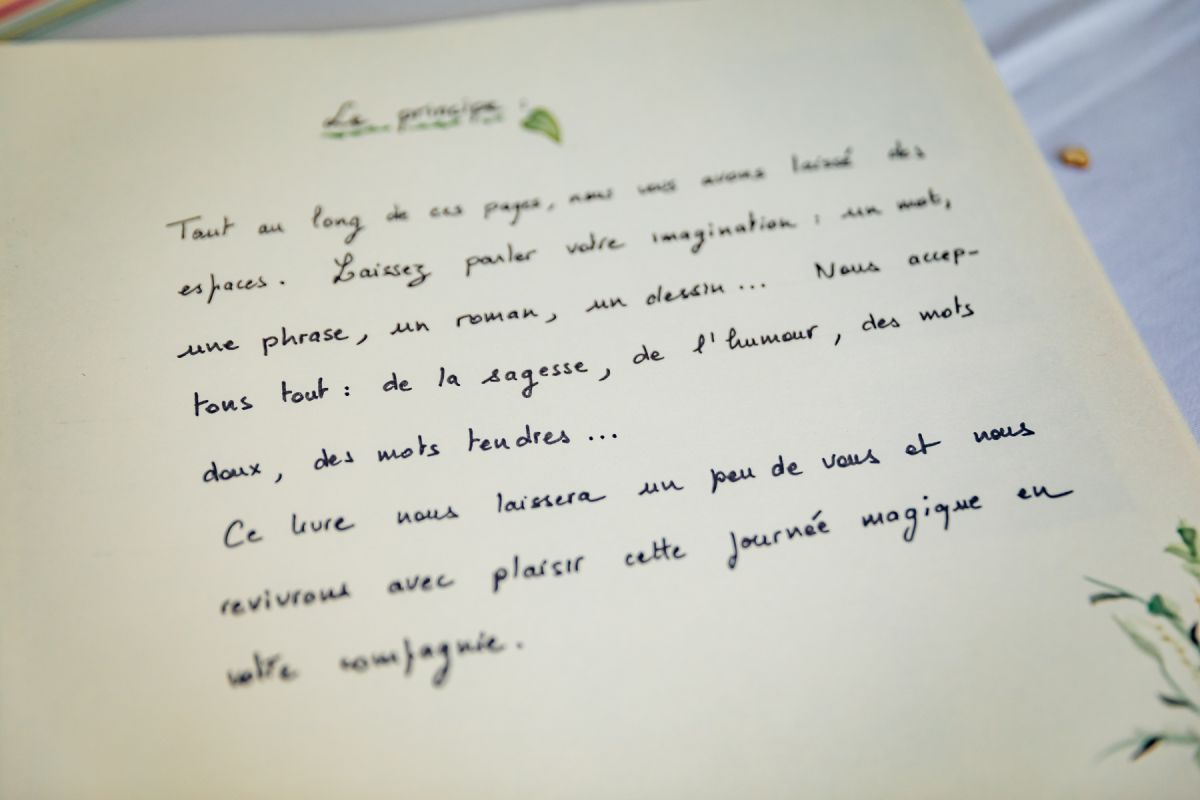 Le principe :
Tout au long de ces pages, nous vous avons laissé des
espaces. Laissez parler votre imagination : un mot,
une phrase, un roman, un dessin... Nous accep-
tons tout : de la sagesse, de l'humour, des mots
doux, des mots tendres...
Ce livre nous laissera un peu de vous et nous
revivrons avec plaisir cette journée magique en
votre compagnie.